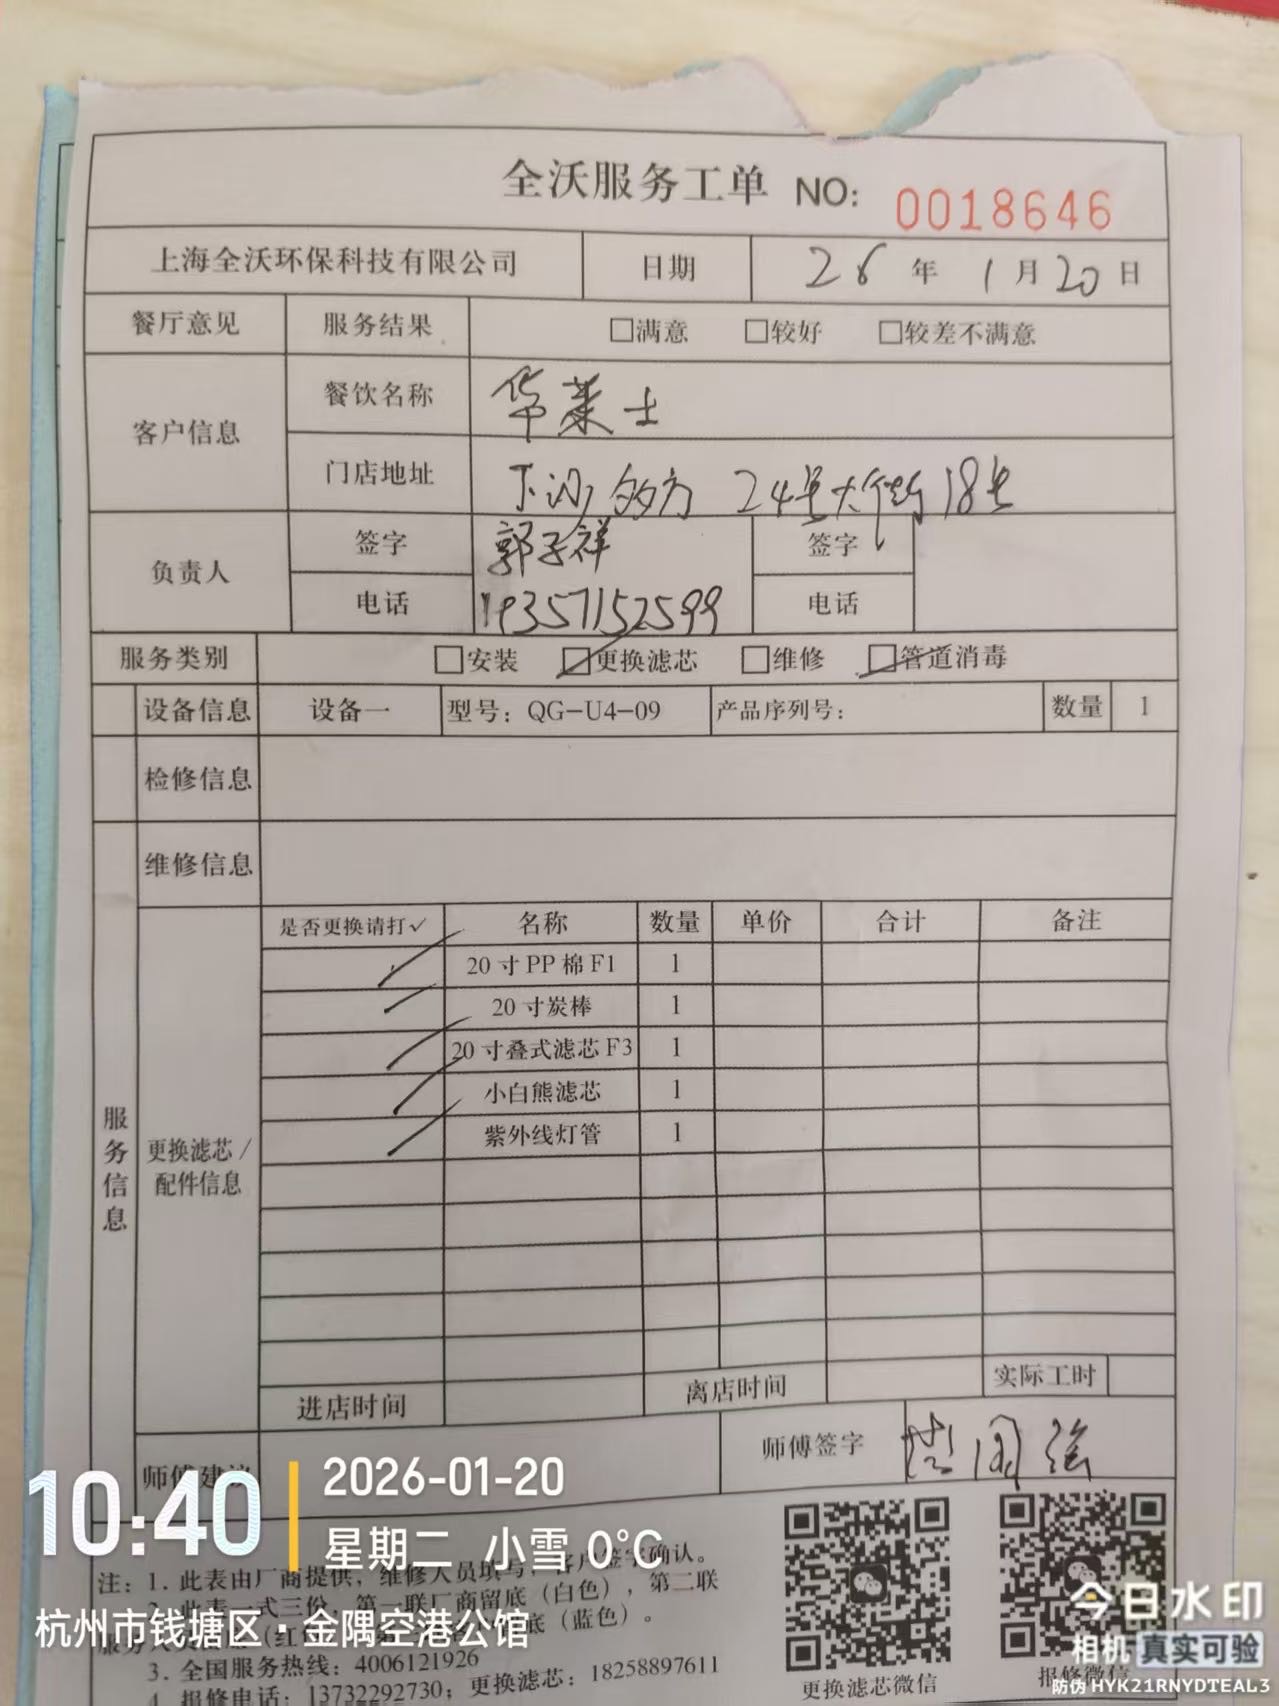 全沃服务工单 NO: 0018646
上海全沃环保科技有限公司 日期 26年1月20日
餐厅意见 服务结果 □满意 □较好 □较差不满意
客户信息 餐饮名称 华莱士
门店地址 下沙 多方 24号大街18号
负责人 签字 郭子祥 签字
电话 19357152599 电话
服务类别 □安装 ☑更换滤芯 □维修 ☑管道消毒
设备信息 设备一 型号：QG-U4-09 产品序列号： 数量 1
检修信息
维修信息
是否更换请打✓ 名称 数量 单价 合计 备注
✓ 20寸PP棉F1 1
✓ 20寸炭棒 1
✓ 20寸叠式滤芯F3 1
✓ 小白熊滤芯 1
✓ 紫外线灯管 1
服务信息
更换滤芯/
配件信息
进店时间 离店时间 实际工时
师傅建议 师傅签字 国强
10:40
2026-01-20
星期二 小雪 0°C
杭州市钱塘区·金隅空港公馆
注：1. 此表由厂商提供，维修人员填写，客户签字确认。
2. 此表一式三份，第一联厂商留底（白色），第二联
（红色） 底（蓝色）。
3. 全国服务热线：4006121926
4. 报修电话：13732292730；更换滤芯：18258897611
更换滤芯微信 报修微信
今日水印
相机 真实可验
防伪 HYK21RNYDTEAL3